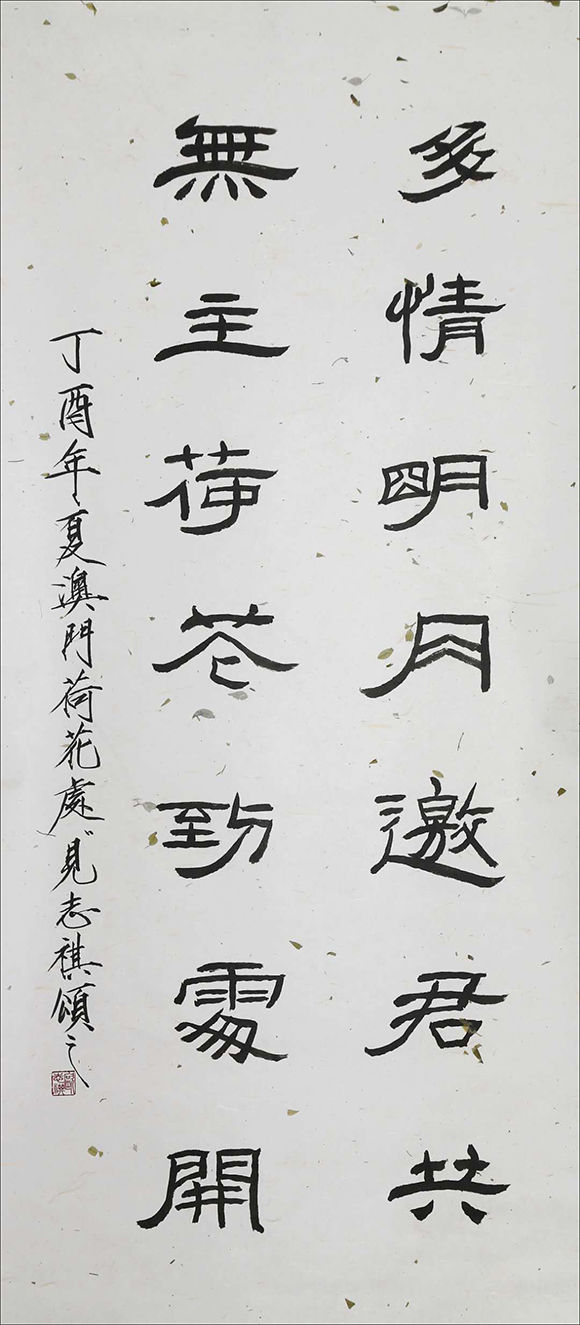 多情明月邀君共
無主荷花到處開
丁酉年夏澳門荷花處處見志祺頌之